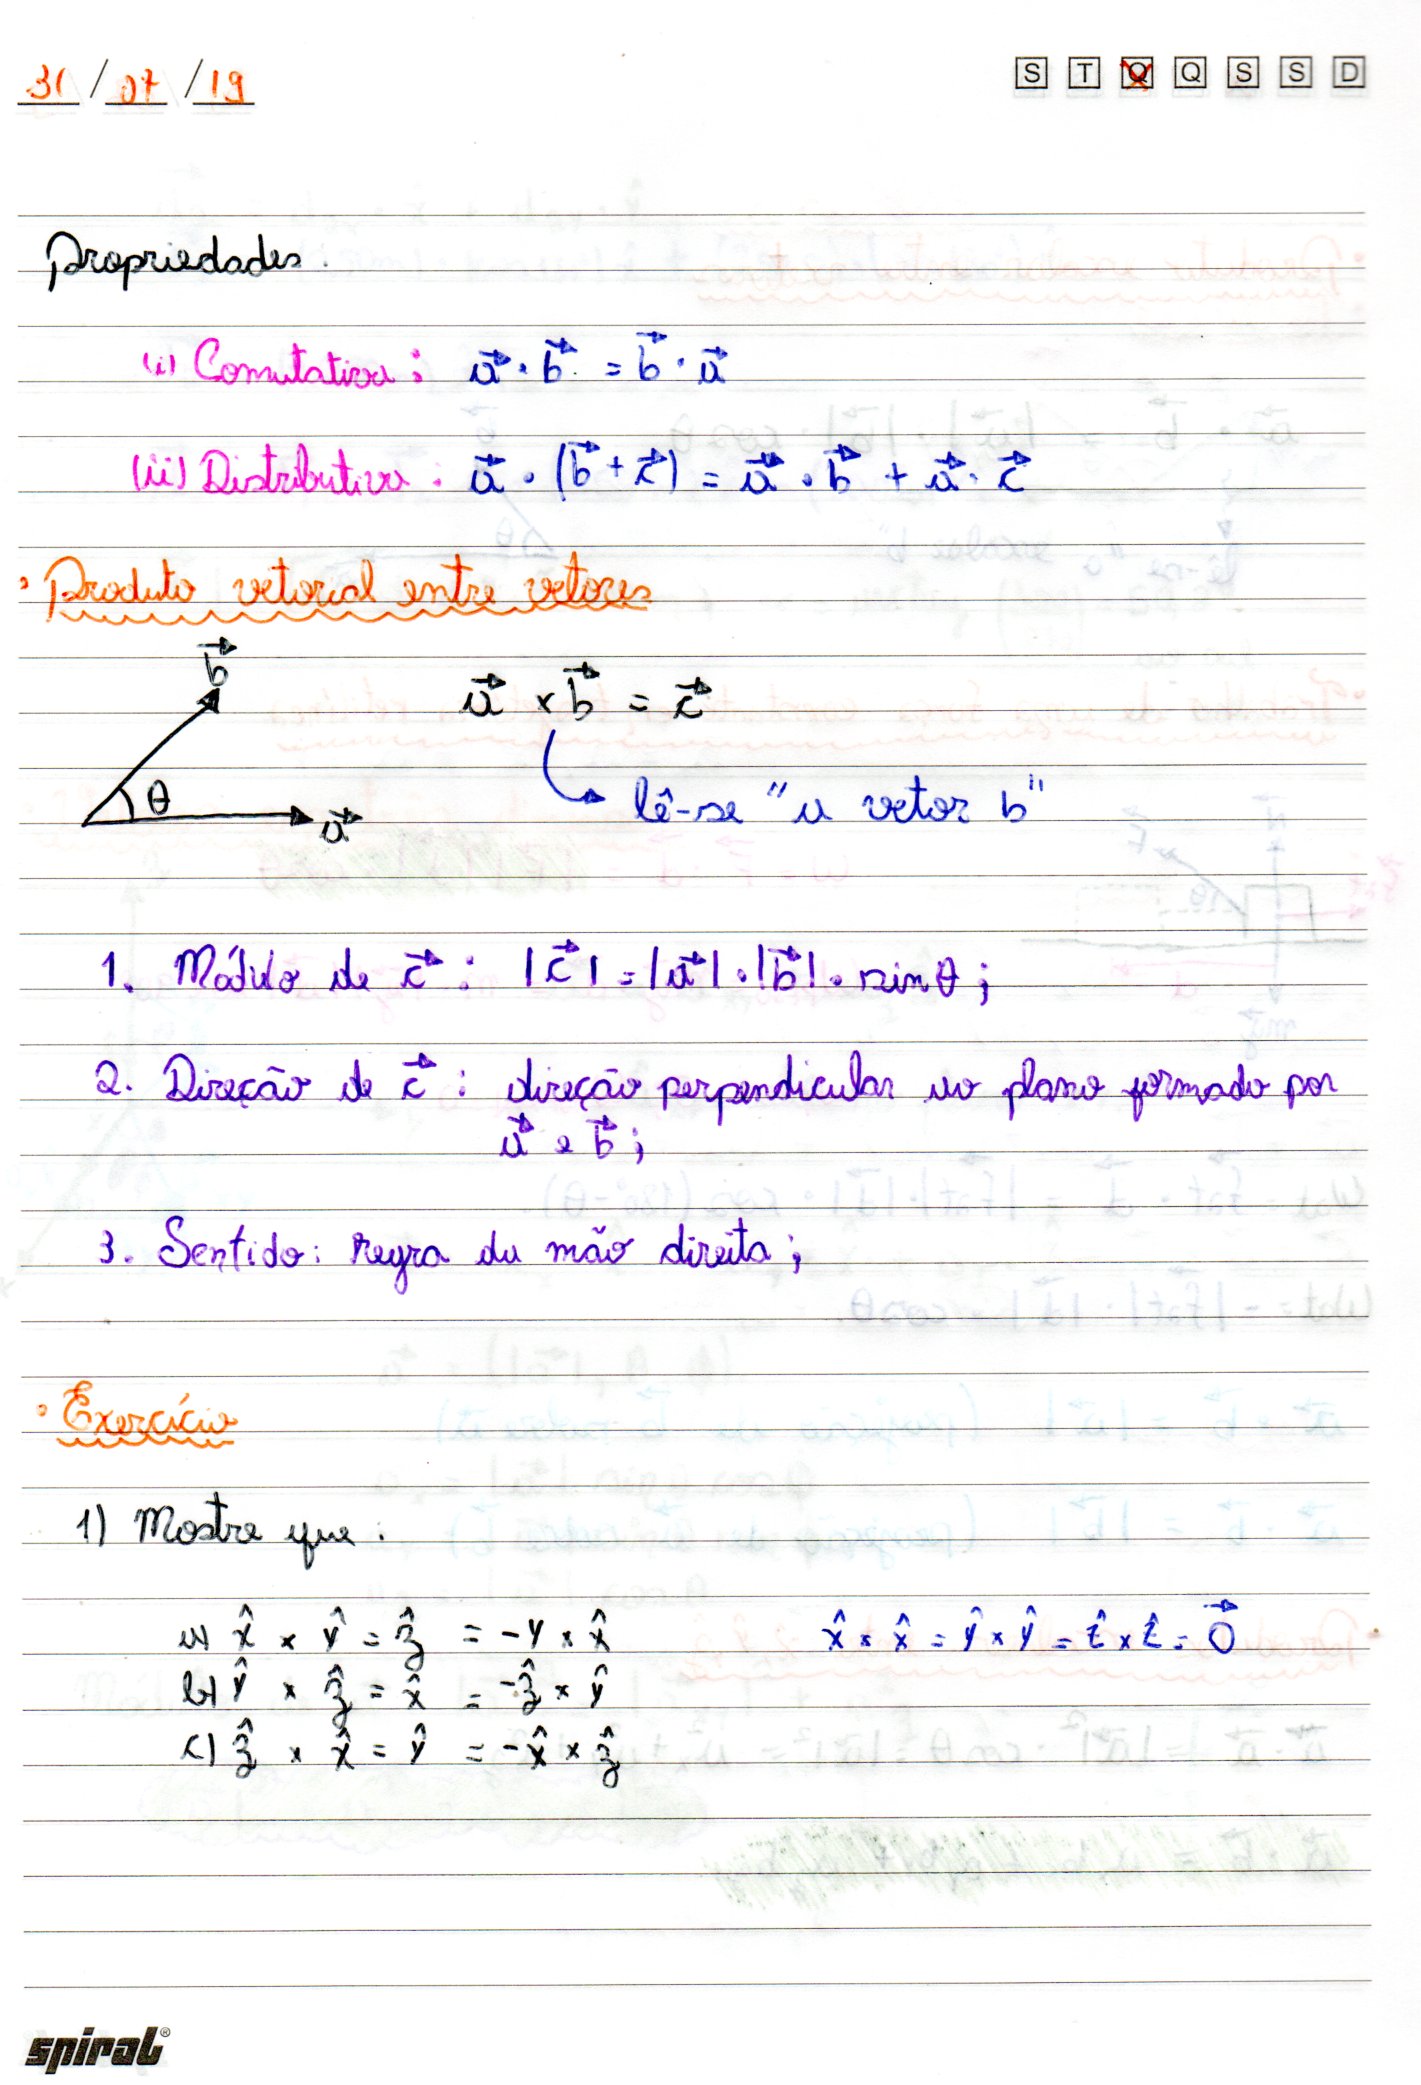 31 / 07 / 19
S T Q Q S S D
Propriedades.
(i) Comutativa: a⃗ · b⃗ = b⃗ · a⃗
(ii) Distributiva: a⃗ · (b⃗ + c⃗) = a⃗ · b⃗ + a⃗ · c⃗
• Produto vetorial entre vetores
b⃗
a⃗ × b⃗ = c⃗
θ
a⃗
lê-se "a vetor b"
1. Módulo de c⃗ : |c⃗| = |a⃗| · |b⃗| · sin θ ;
2. Direção de c⃗ : direção perpendicular ao plano formado por
a⃗ e b⃗ ;
3. Sentido: regra da mão direita ;
• Exercício
1) Mostre que:
a) x̂ × ŷ = ẑ = -y × x̂ x̂ × x̂ = ŷ × ŷ = ẑ × ẑ = 0⃗
b) ŷ × ẑ = x̂ = -ẑ × ŷ
c) ẑ × x̂ = ŷ = -x̂ × ẑ
spiral®